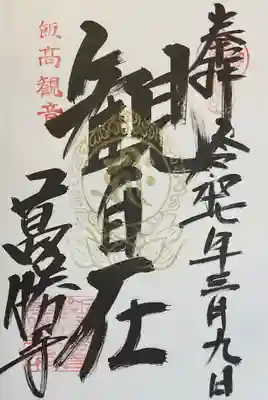 奉拝
令和七年三月九日
観自在
飯高観音
萬勝寺